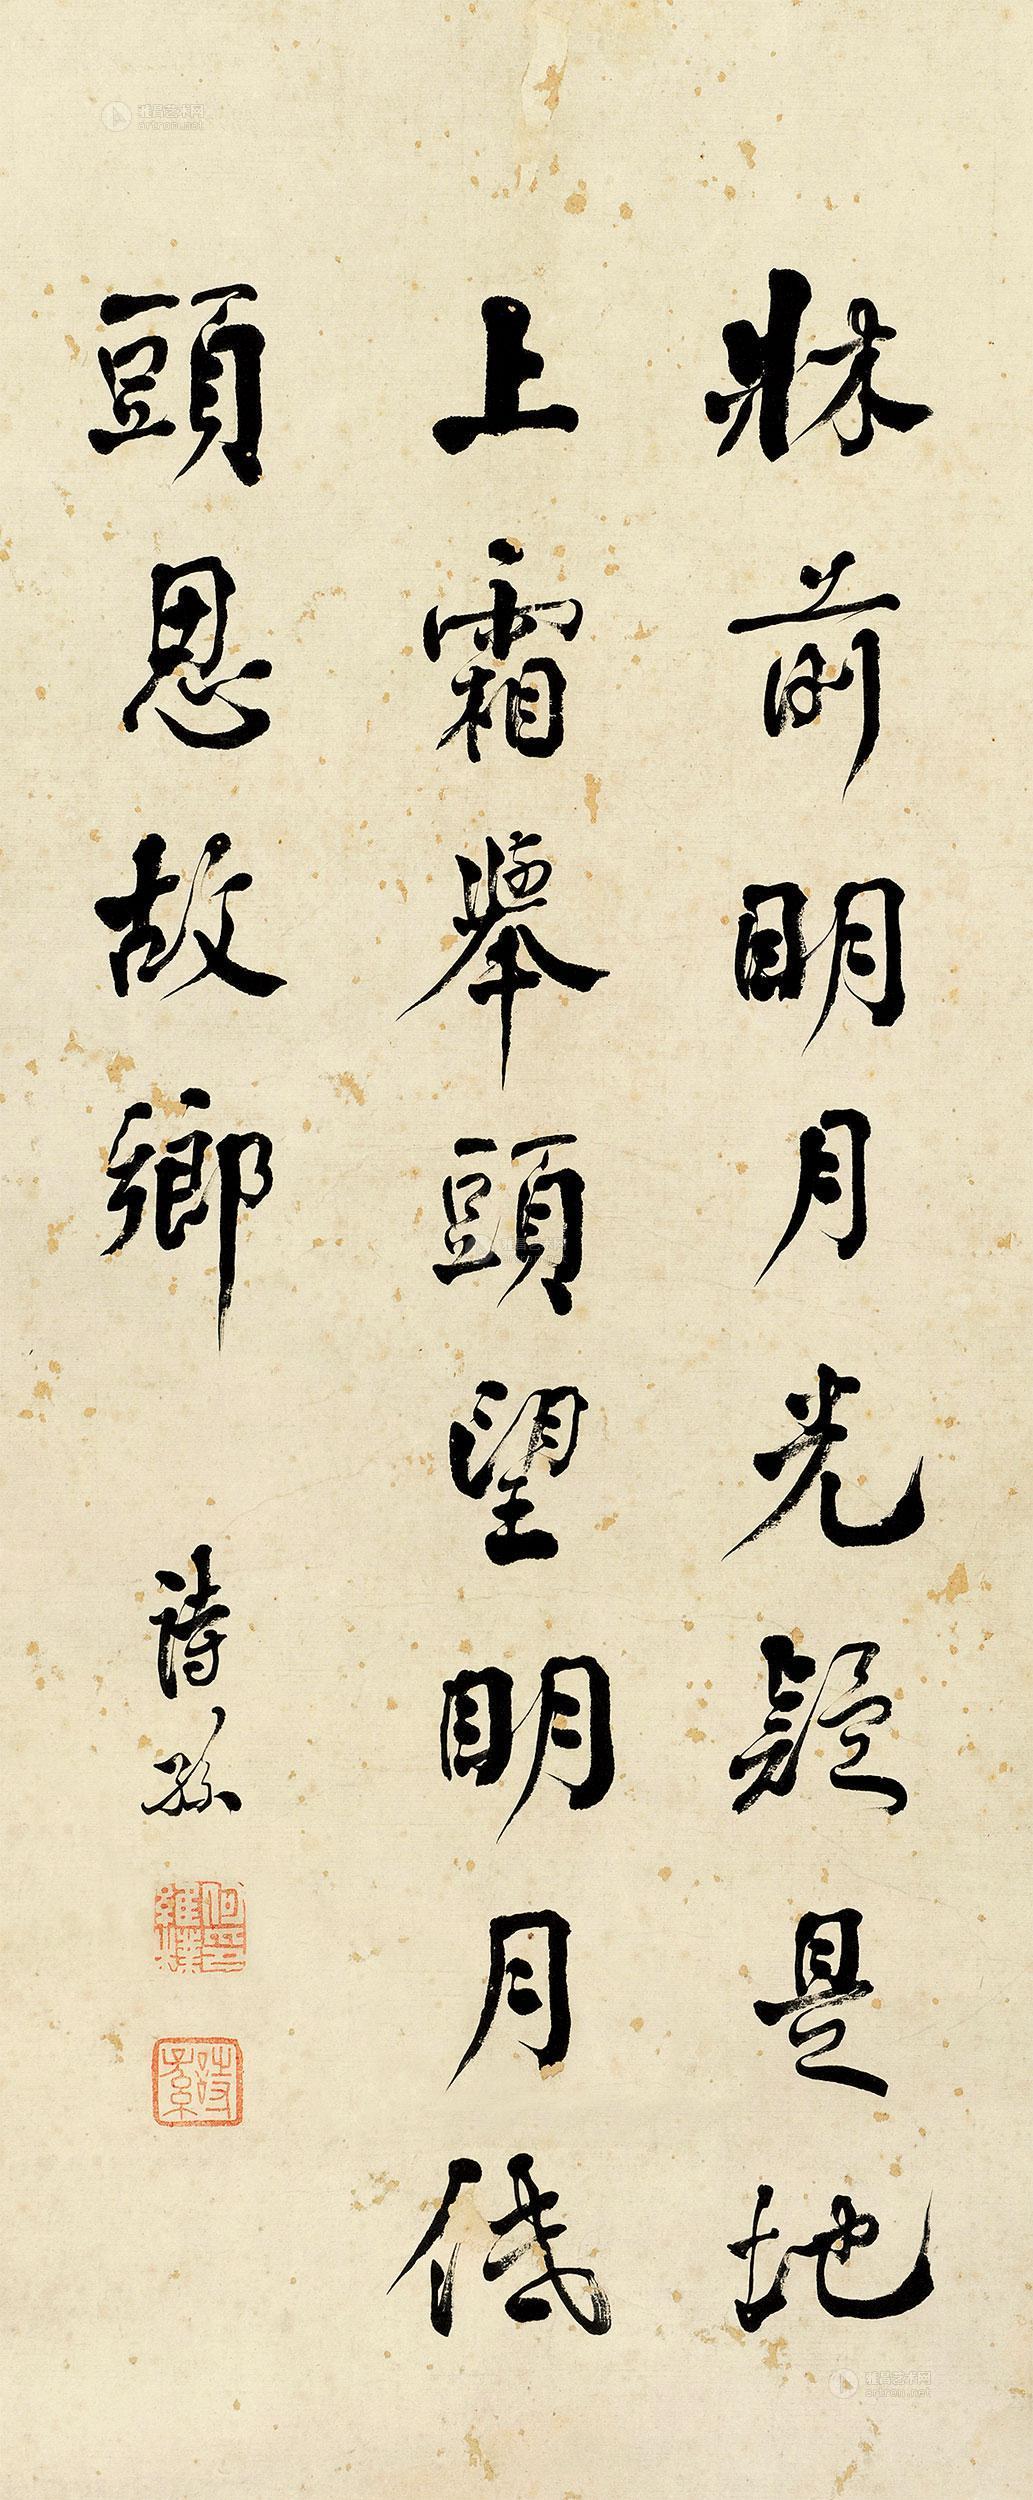 牀前明月光疑是地
上霜舉頭望明月低
頭思故鄉
詩孫
何印維樸
詩孫
雅昌艺术网
artron.net
雅昌艺术网
artron.net